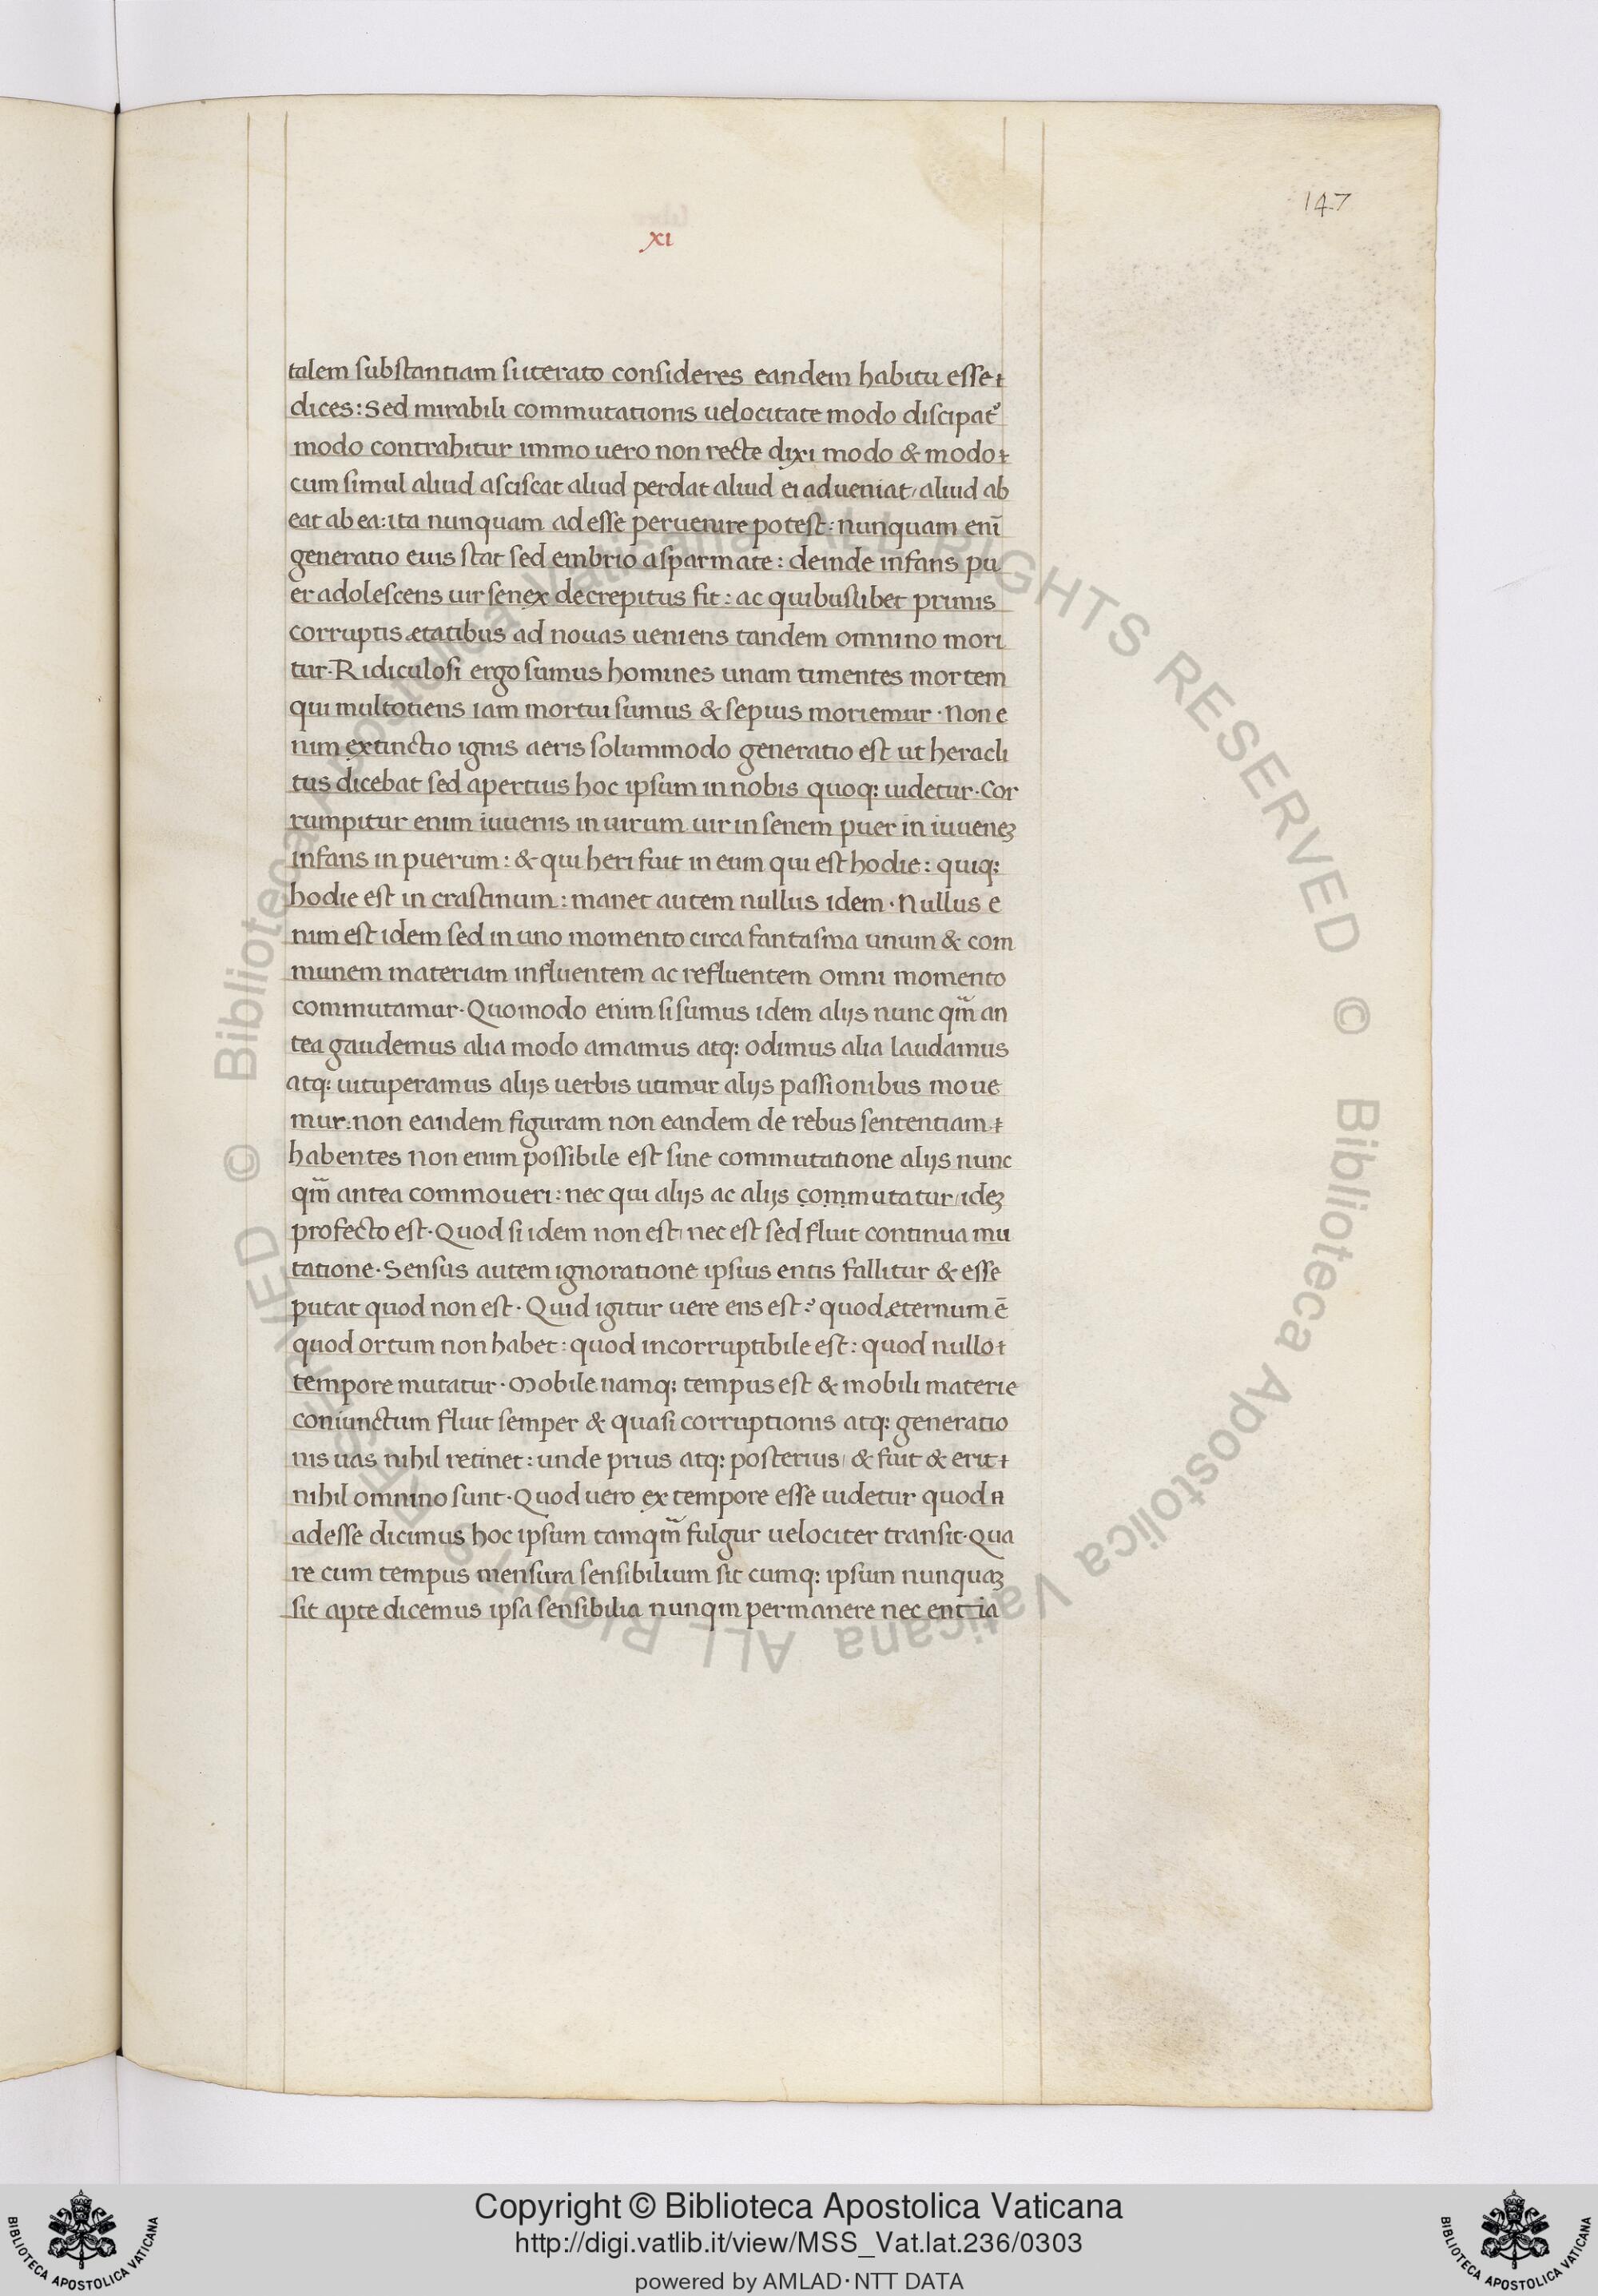 147
xi
talem substantiam siiterato consideres eandem habitu esse
dices: Sed mirabili commutationis uelocitate modo discipat᷒
modo contrahitur immo uero non recte dixi modo & modo
cum simul aliud asciscat aliud perdat aliud ei adueniat, aliud ab
eat ab ea: ita nunquam ad esse peruenire potest: nunquam enī
generatio euis stat sed embrio asparmate: deinde infans pu
er adolescens uir senex decrepitus fit: ac quibuslibet primis
corruptis ætatibus ad nouas ueniens tandem omnino mori
tur. Ridiculosi ergo sumus homines unam timentes mortem
qui multotiens iam mortui sumus & sepius moriemur. Non e
nim extinctio ignis aeris solummodo generatio est ut heracli
tus dicebat sed apertius hoc ipsum in nobis quoq; uidetur. Cor
rumpitur enim iuuenis in uirum uir in senem puer in iuueneʒ
infans in puerum: & qui heri fuit in eum qui est hodie: quiq;
hodie est in crastinum: manet autem nullus idem. Nullus e
nim est idem sed in uno momento circa fantasma unum & com
munem materiam influentem ac refluentem omni momento
commutamur. Quomodo enim si sumus idem alijs nunc qm̃ an
tea gaudemus alia modo amamus atq; odimus alia laudamus
atq; uituperamus alijs uerbis utimur alijs passionibus moue
mur: non eandem figuram non eandem de rebus sententiam
habentes non enim possibile est sine commutatione alijs nunc
qm̃ antea commoueri: nec qui alijs ac alijs commutatur, ideʒ
profecto est. Quod si idem non est, nec est sed fluit continua mu
tatione. Sensus autem ignoratione ipsius entis fallitur & esse
putat quod non est. Quid igitur uere ens est? quod æternum ē
quod ortum non habet: quod incorruptibile est: quod nullo
tempore mutatur. Mobile namq; tempus est & mobili materie
coniunctum fluit semper & quasi corruptionis atq; generatio
nis uas nihil retinet: unde prius atq; posterius, & fuit & erit
nihil omnino sunt. Quod uero ex tempore esse uidetur quod
adesse dicimus hoc ipsum tamqm̃ fulgur uelociter transit. Qua
re cum tempus mensura sensibilium sit cumq; ipsum nunquaʒ
sit apte dicemus ipsa sensibilia nunqm permanere nec entia
© Biblioteca Apostolica Vaticana ALL RIGHTS RESERVED © Biblioteca Apostolica Vaticana ALL RIGHTS RESERVED
Copyright © Biblioteca Apostolica Vaticana
http://digi.vatlib.it/view/MSS_Vat.lat.236/0303
powered by AMLAD·NTT DATA
BIBLIOTECA APOSTOLICA VATICANA
BIBLIOTECA APOSTOLICA VATICANA